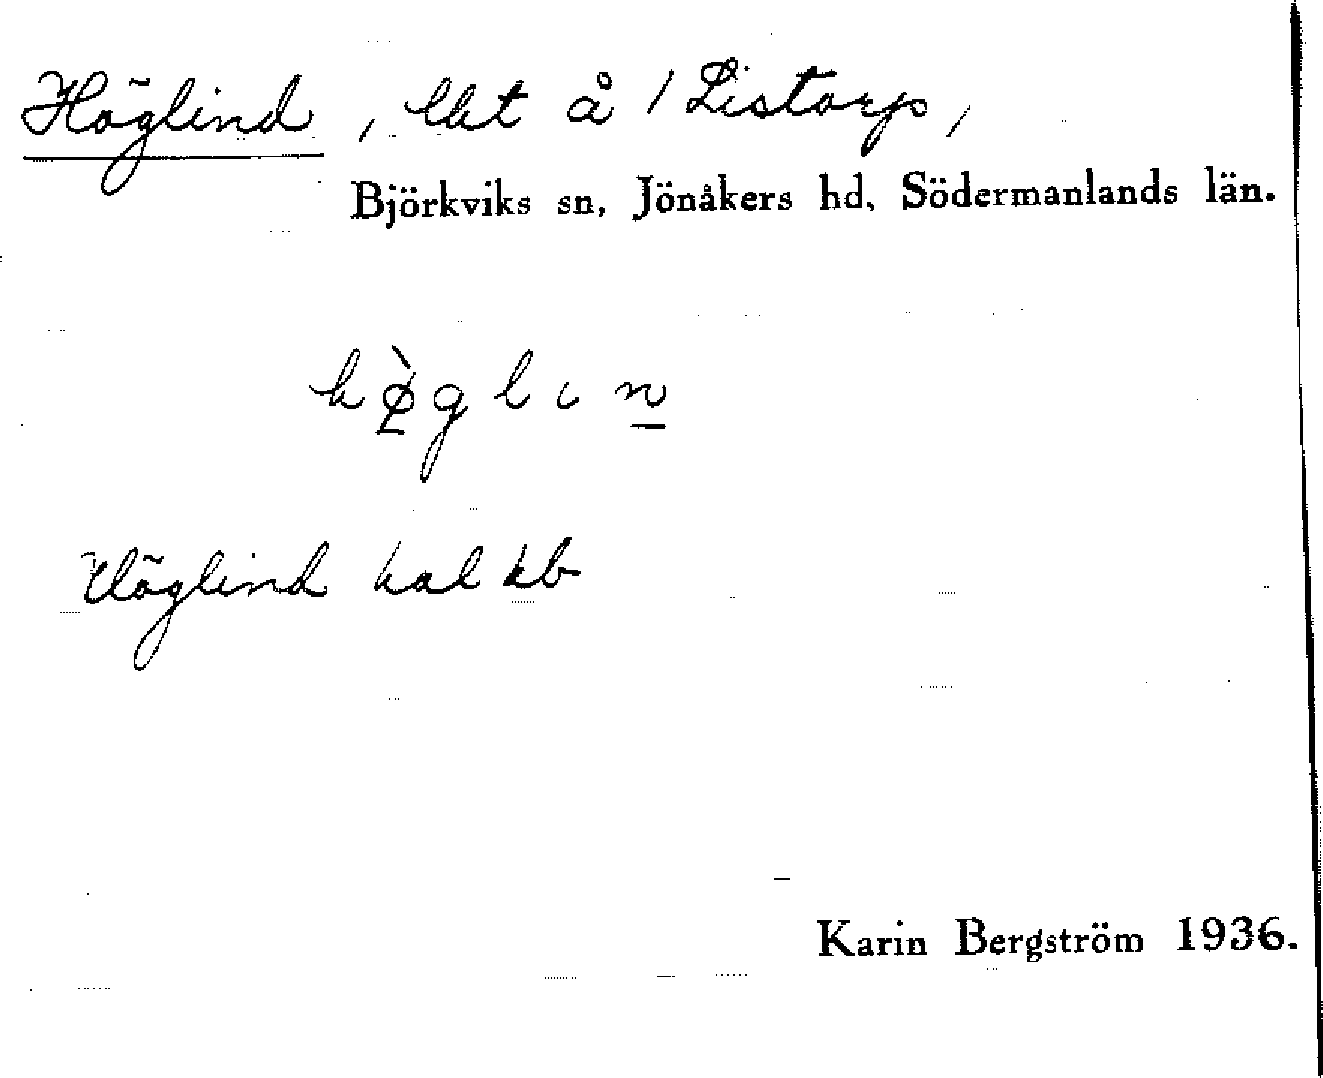 Höglind, lht å 1 Listorp,
Björkviks sn, Jönåkers hd, Södermanlands län.
hø̀glιn
Höglind hal kb
Karin Bergström 1936.